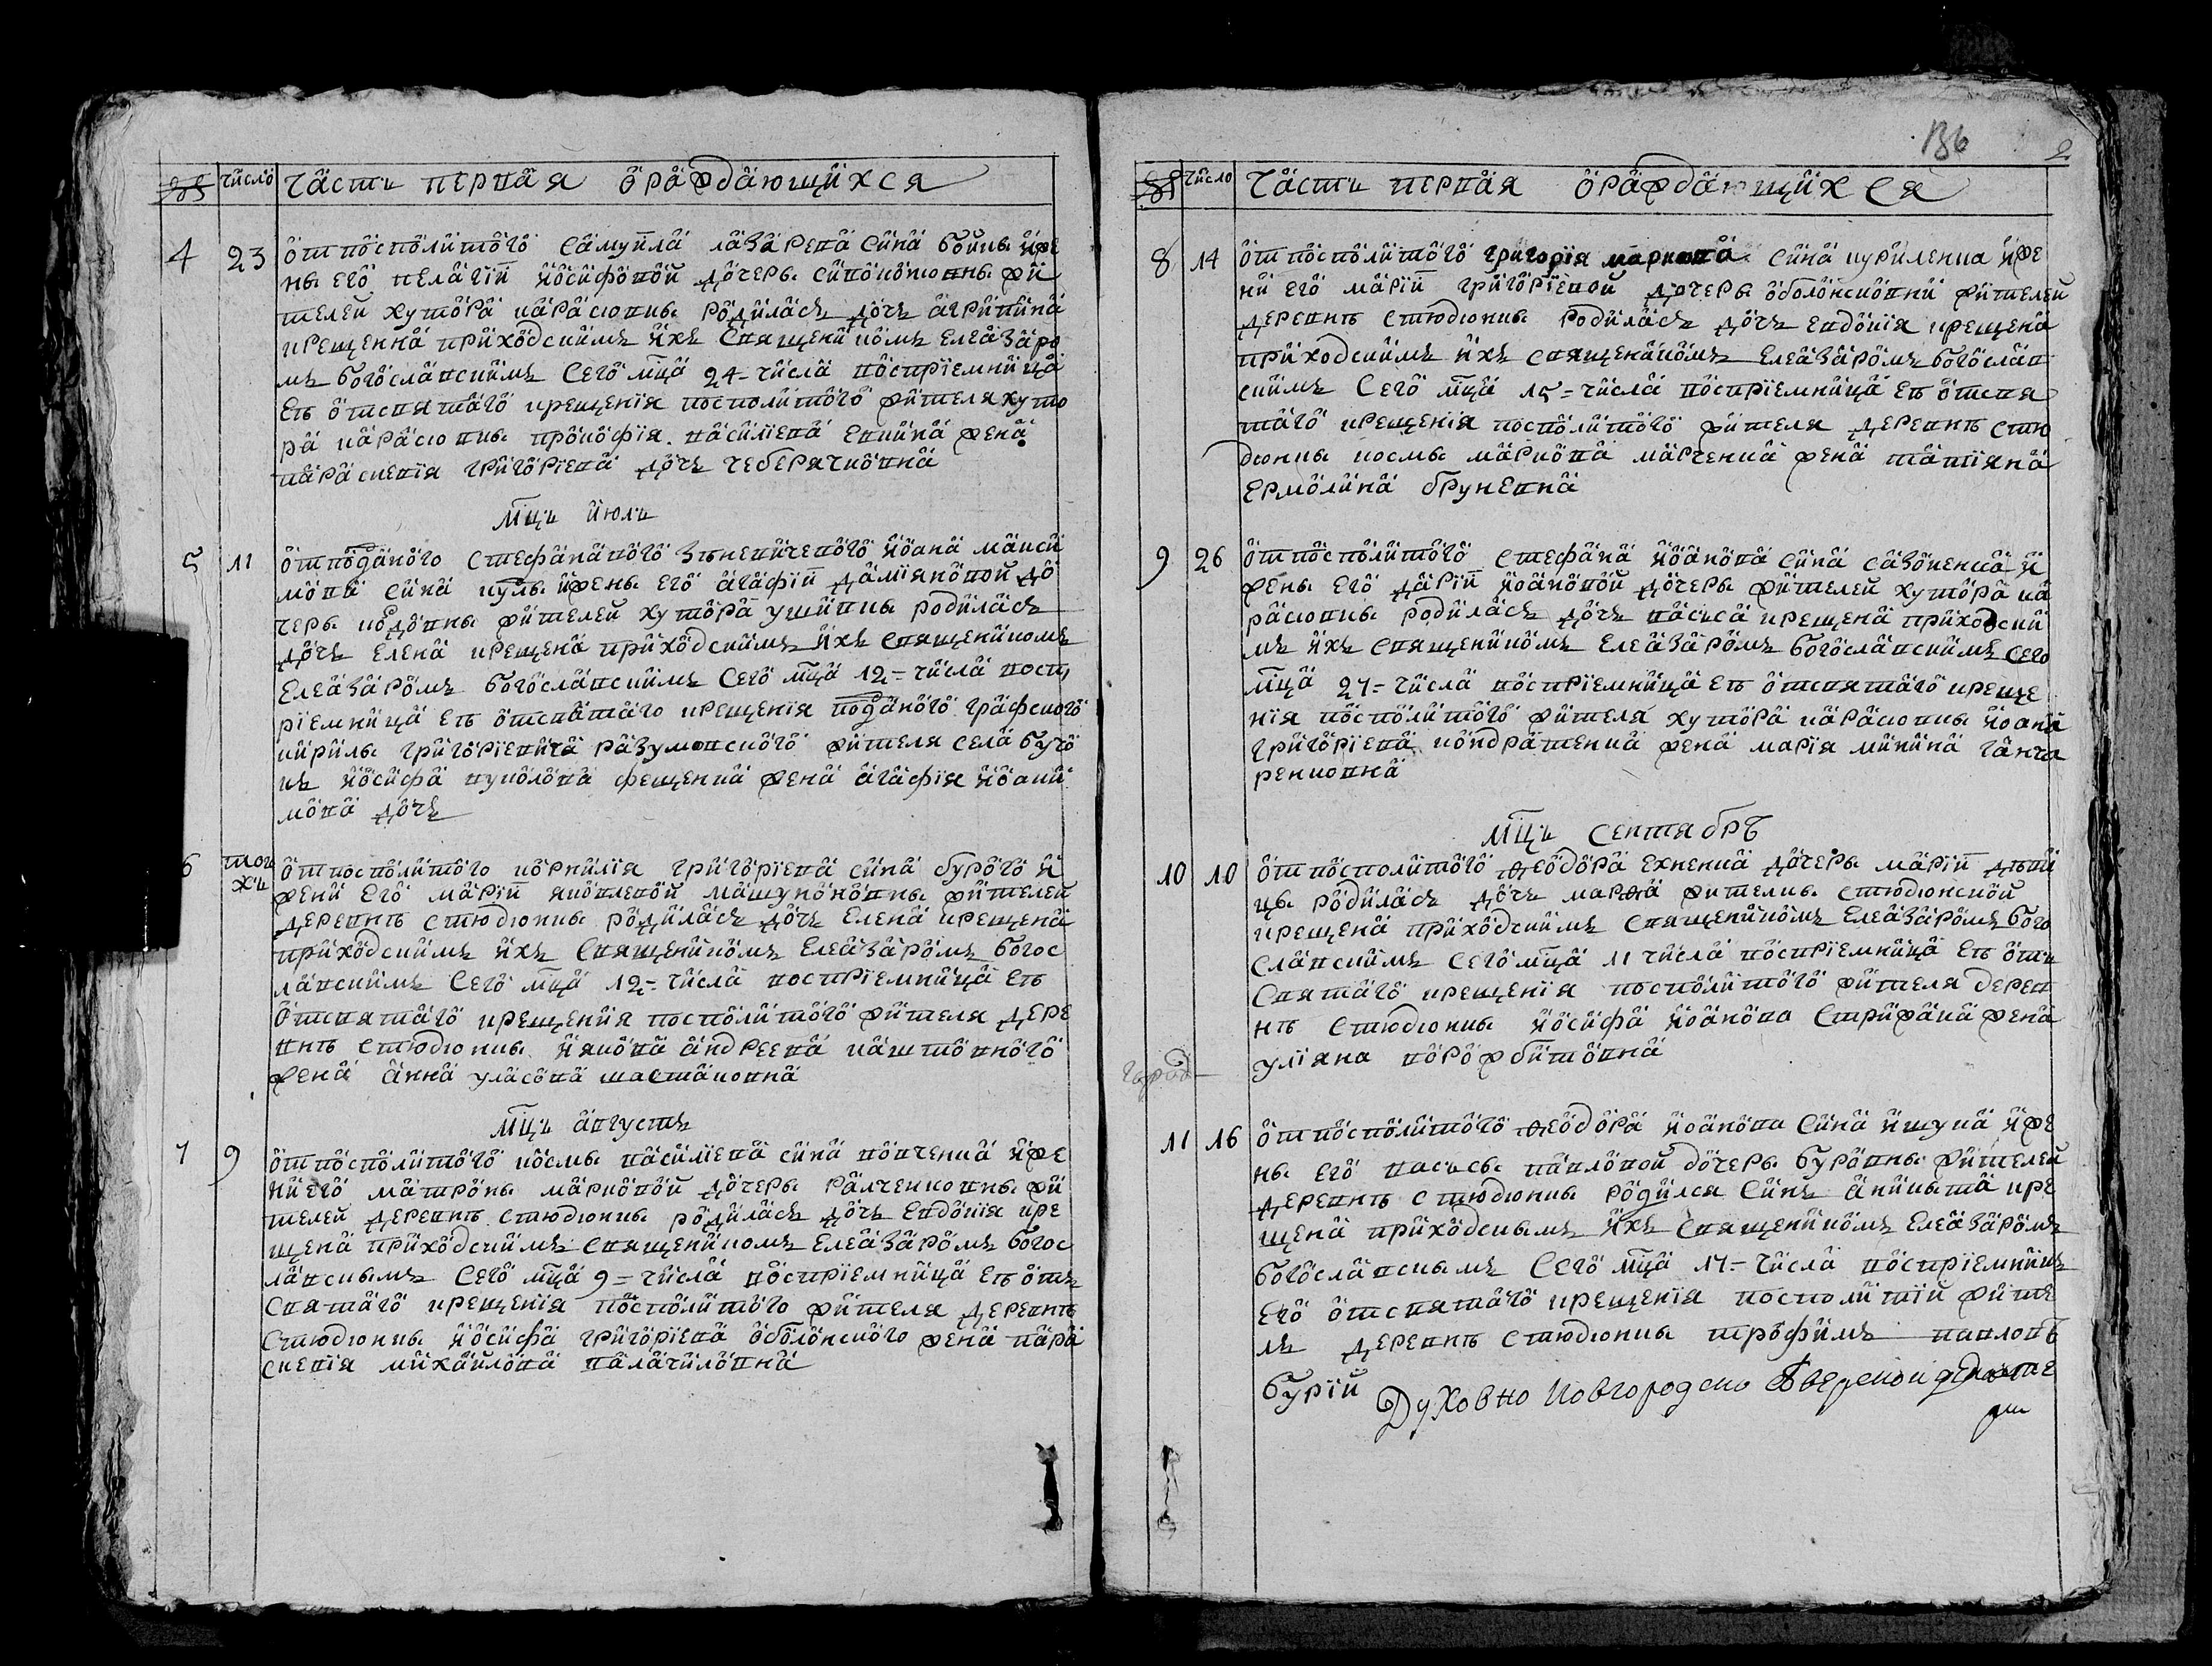 число часть первая ораждающихся
4 23 отпосполитого самуйла лазарева сина бойцы ижe
ны его пелагiи иосифовой дочеры синоцовны жи
телей хутора карасювки родиласъ дочъ агрипина
крещенна приходскимъ ихъ священикомъ елеазаро
мъ богославскимъ сего мца 24-числа восприемница
ев отсвятаго крещенiя посполитого жителя хуто
ра карасювки прокофiя василiева ... жена
параскевiя григорiева дочъ чеберячковна
мцъ июль
5 11 отподаного стефанапого ... иоана макси
мова сина куцы ижены его агафiи дамiяновой до
черы ... жителей хутора ушивки родиласъ
дочъ елена крещена приходскимъ ихъ священикомъ
елеазаромъ богославскимъ сего мца 12-числа восп
рiемница ев отсвятаго крещенiя поданого графского
кирилы григорiевича разумовского жителя села бучо
къ иосифа ... фещенка жена агафiя иоаки
мова дочъ
6 тогожъ отпосполитого корнилiя григорiева сина бурого и
жени его марiи яковлевой машуконовны жителей
деревнъ стюдюнки родиласъ дочъ елена крещена
приходскимъ ихъ священикомъ елеазаромъ богос
лавскимъ сего мца 12-числа восприемница ев
отсвятаго крещения посполитого жителя дере
внъ стюдюнки иякова андреева каштовного
жена анна уласова шастаковна
мцъ августъ
7 9 отпосполитого космы василiева сина повченка ижe
ни его матроны марковой дочеры ралченковны жи
телей деревнъ стюдюнки родиласъ дочъ евдокiя кре
щена приходскимъ священикомъ елеазаромъ богос
лавскымъ сего мца 9-числа восприемница ев отъ
святаго крещенiя посполитого жителя деревнъ
стюдюнки иосифа григорiева оболонского жена пара
скевiя михайлова палачиловна
136 2
число часть первая ораждающихся
8 14 отпосполитого григорiя маркова сина куриленка ижe
ни его марiи григорiевой дочеры оболонсковни жителей
деревнъ стюдюнки родиласъ дочъ евдокiя крещена
приходскимъ ихъ священикомъ елеазаромъ богослав
скимъ сего мца 15-числа восприемница ев отсвя
таго крещенiя посполитого жителя деревнъ стю
дюнки космы маркова марченка жена татiяна
ермолина бруневна
9 26 отпосполитого стефана иоанова сина сазоненка и
жены его дарiи иоановой дочеры жителей хутора ка
расювки родиласъ дочъ васъса крещена приходски
мъ ихъ священикомъ елеазаромъ богославскимъ сего
мца 27-числа восприемница ев отсвятаго креще
нiя посполитого жителя хутора карасювки иоана
григорiева кондратенка жена марiя минина ганча
ренковна
мцъ сентябрь
10 10 отпосполитого феодора ехненка дочеры марiи дъви
цы родиласъ дочъ марфа жителкы стюдюнской
крещена приходскимъ священикомъ елеазаромъ бого
славскимъ сего мца 11 числа восприемница ев отъ
святаго крещенiя посполитого жителя дерев
нъ стюдюнки иосифа иоанова стрижака жена
улiяна ворожбитовна
11 16 отпосполитого феодора иоанова сина ищука ижe
ны его васъсы павловой дочеры буровны жителей
деревнъ стюдюнки родился синъ аникыта кре
щена приходскымъ ихъ священикомъ елеазаромъ
богославскымъ сего мца 17-числа восприемникъ
его отсвятаго крещенiя посполитiй жите
лъ деревнъ стюдюнки трофимъ павловъ
бурiй Духовно Новгородско Сѣверской